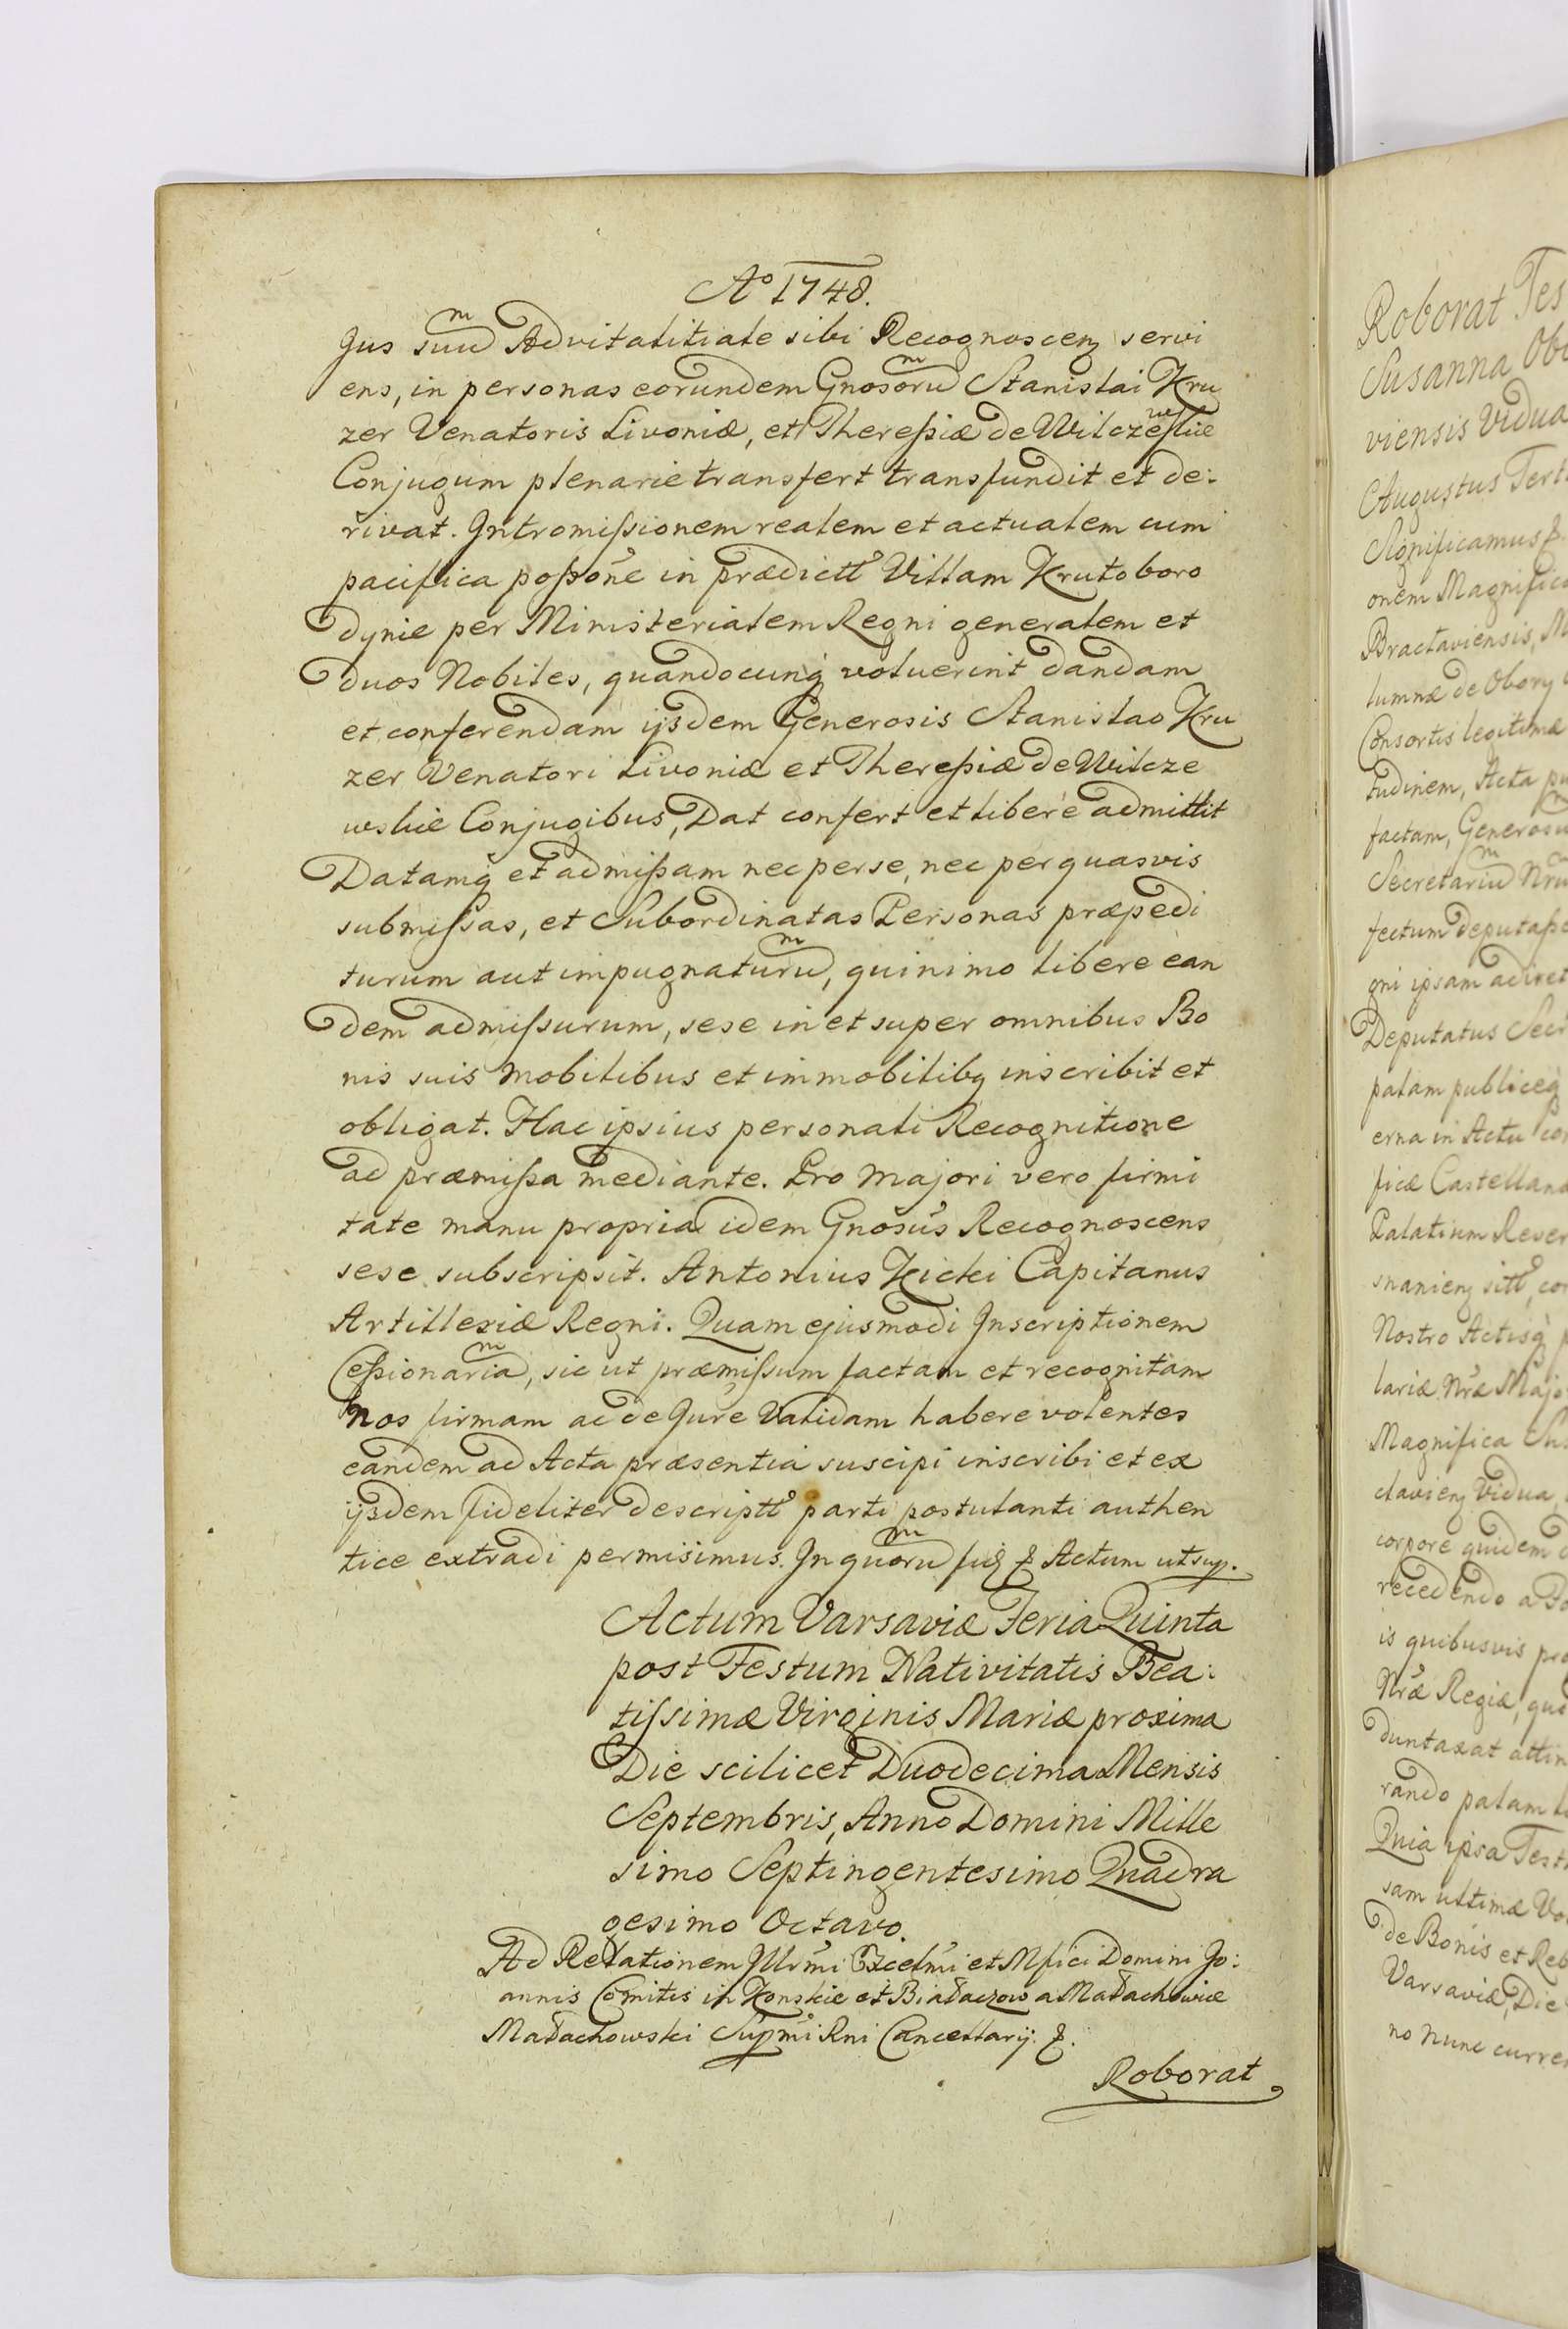 Aº 1748.
Jus suu͞m Advitalitiale sibi Recognoscenꝫ servi
ens, in personas eorundem Gnosoru͞m Stanislai Kru
zer Venatoris Livoniæ, et Theressiæ de Wilczewskie
Conjugum plenarie transfert transfundit et de:
rivat. Intromissionem realem et actualem cum
pacifica possõne in prædictt Villam Krutoboro
dynie per Ministerialem Regni generalem et
duos Nobiles, quandocunq voluerint dandam
et conferendam ijsdem Generosis Stanislao Kru
zer Venatori Livoniæ et Theressiæ de Wilcze
wskie Conjugibus, Dat confert et libere admittit
Datamq et admissam nec per se, nec per quasvis
submissas, et Subordinatas Personas præpedi
turum aut impugnaturu͞m, quinimo libere ean
dem admissurum, sese in et super omnibus Bo
nis suis mobilibus et immobilibꝫ inscribit et
obligat. Hac ipsius personali Recognitione
ad præmissa mediante. Pro majori vero firmi
tate manu propria idem Gnosus Recognoscens
sese subscripsit. Antonius Kicki Capitanus
Artilleriæ Regni. Quam ejusmodi Inscriptionem
Cessionaria͞m, sic ut præmissum factam et recognitam
Nos firmam ac de Jure Validam habere volentes
eandem ad Acta præsentia suscipi inscribi et ex
ijsdem fideliter descriptt parti postulanti authen
tice extradi permisimus. In quoru͞m fid ꝛ Actum ut sup.
Actum Varsaviæ Feria Quinta
post Festum Nativitatis Bea:
tissimæ Virginis Mariæ proxima
Die scilicet Duodecima Mensis
Septembris, Anno Domini Mille
simo Septingentesimo Quadra
gesimo Octavo.
Ad Relationem Illrmi Excelmi et Mfici Domini Jo:
annis Comitis in Konskie et Białaczow a Małachowice
Małachowski Supmi Rni Cancellarij. ꝛ.
Roborat
Roborat Tes
Susanna Obo
viensis Vidua
Augustus Terti
Significamus ꝛ
onem Magnifica
Braclaviensis, M
lumnæ de Obory
Consortis legitimæ
tudinem, Acta p
factam, Generosu
Secretariu͞m Nru
fectum deputasse
gni ipsam adiret
Deputatus Secr
palam publiceq
erna in Actu co
ficæ Castellana
Palatium Reser
snanienꝫ sitt, co
Nostro Actisq
lariæ Nræ Majo
Magnifica Su
clavienꝫ Vidua
corpore quidem
recedendo a Fo
is quibusvis pro
Nræ Regiæ, quo
duntaxat attin
rando palam li
Quia ipsa Testa
sam ultimæ Vo
de Bonis et Reb
Varsaviæ, Die
no nunc curren